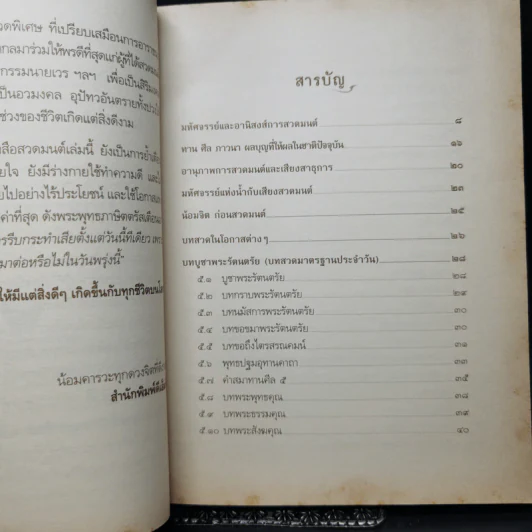 วดพิเศษ ที่เปรียบเสมือนการอาราธ
กลมาร่วมให้พรดีที่สุดแก่ผู้ที่ได้สวดมน
กรรมนายเวร ฯลฯ เพื่อเป็นสิริมง
เป็นอวมงคล อุปัทวอันตรายทั้งปวง
ช่วงของชีวิตเกิดแต่สิ่งดีงาม
สือสวดมนต์เล่มนี้ ยังเป็นการย้ำเตือ
ายใจ ยังมีร่างกายใช้ทำความดี
ยไปอย่างไร้ประโยชน์ และใช้โอกาส
ค่าที่สุด ดังพระพุทธภาษิตตรัสเตือน
ารรีบกระทำเสียตั้งแต่วันนี้ทีเดียว
มาต่อหรือไม่ในวันพรุ่งนี้”
ให้มีแต่สิ่งดีๆ เกิดขึ้นกับทุกชีวิตบน
น้อมคารวะทุกดวงจิตที่ดี
สำนักพิมพ์
สารบัญ
มหัศจรรย์และอานิสงส์การสวดมนต์ ๘
ทาน ศีล ภาวนา ผลบุญที่ให้ผลในชาติปัจจุบัน ๑๖
อานุภาพการสวดมนต์และเสียงสาธุการ ๒๐
มหัศจรรย์แห่งน้ำกับเสียงสวดมนต์ ๒๓
น้อมจิต ก่อนสวดมนต์ ๒๕
บทสวดในโอกาสต่างๆ ๒๖
บทบูชาพระรัตนตรัย (บทสวดมาตรฐานประจำวัน) ๒๘
๕.๑ บูชาพระรัตนตรัย ๒๘
๕.๒ บทกราบพระรัตนตรัย ๒๙
๕.๓ บทนมัสการพระรัตนตรัย ๓๐
๕.๔ บทขอขมาพระรัตนตรัย ๓๐
๕.๕ บทขอถึงไตรสรณคมน์ ๓๑
๕.๖ พุทธปฐมอุทานคาถา ๓๓
๕.๗ คำสมาทานศีล ๕ ๓๕
๕.๘ บทพระพุทธคุณ ๓๘
๕.๙ บทพระธรรมคุณ ๓๙
๕.๑๐ บทพระสังฆคุณ ๔๐